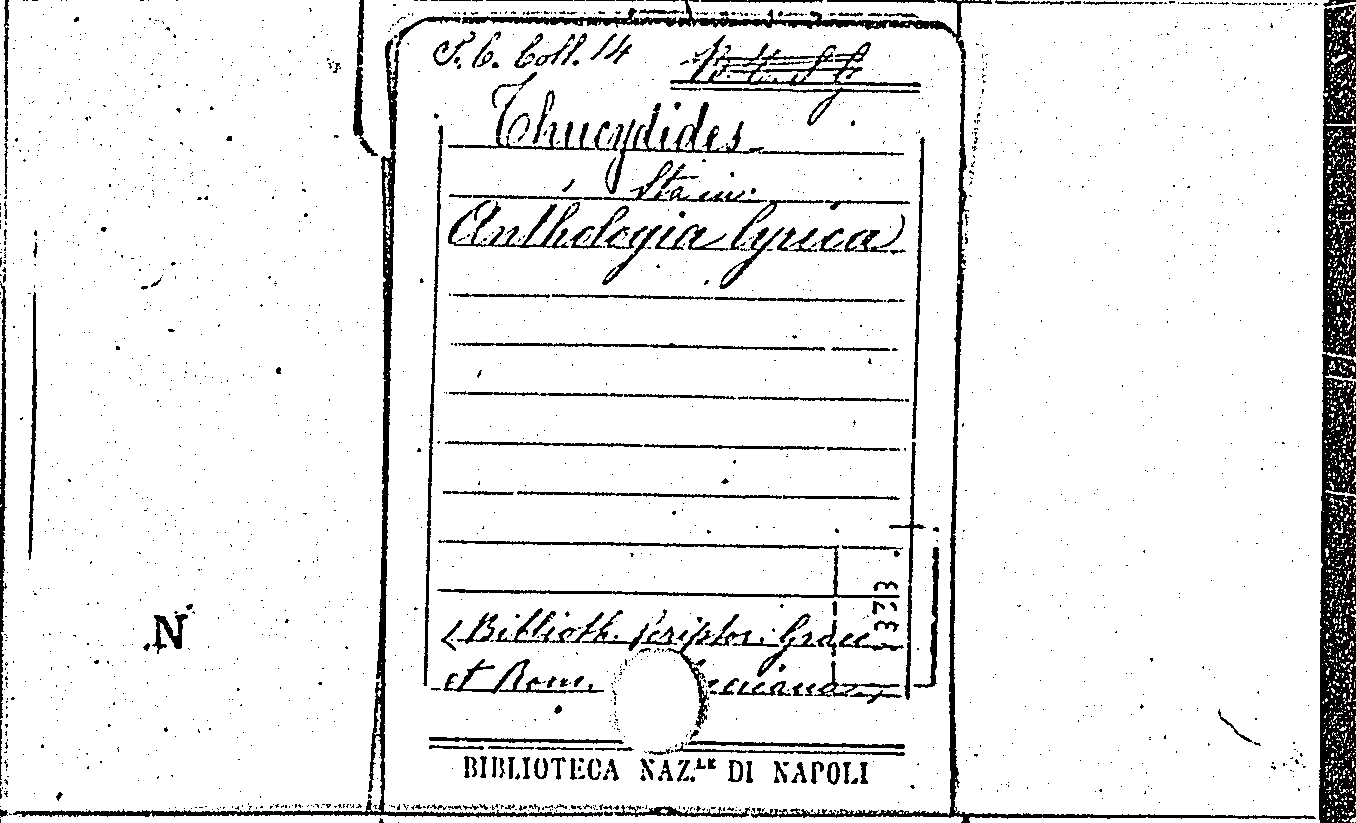 S. C. Coll. 14
Thucydides
Anthologia lyrica
(Biblioth. Scriptor. Graec.
et Rom.
373
BIBLIOTECA NAZ.LE DI NAPOLI
N